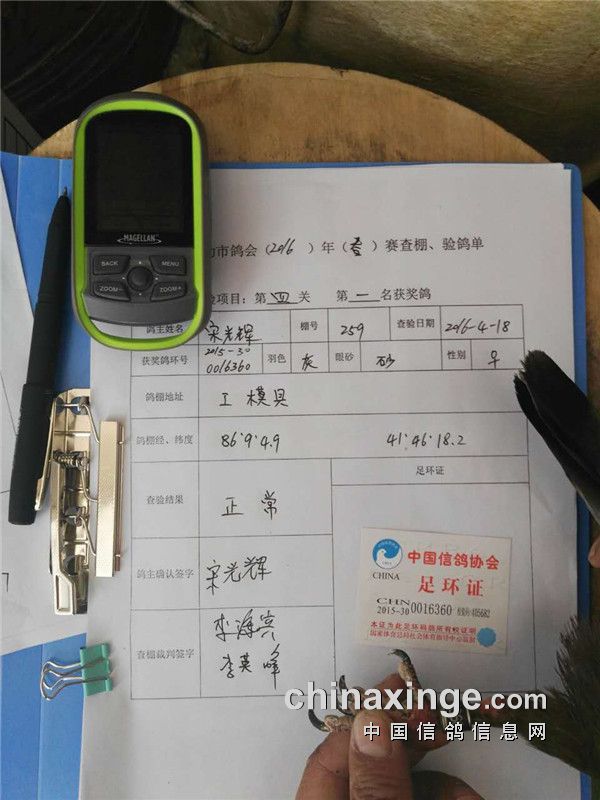 MAGELLAN
BACK
MENU
ZOOM-
ZOOM+
市鸽会（2016 ）年（ 春 ）赛查棚、验鸽单
验项目：第 四 关 第 一 名获奖鸽
鸽主姓名 宋光辉 棚号 259 查验日期 2016-4-18
获奖鸽环号 2015-30 0016360 羽色 灰 眼砂 砂 性别
鸽棚地址 工模具
鸽棚经、纬度 86°9′4.9 41°46′18.2
足环证
查验结果 正常
鸽主确认签字 宋光辉
查棚裁判签字 李海宾
李英峰
中国信鸽协会
CHINA 足环证
CHN
2015-30 0016360
本证为此足环码鸽所有权证明
国家体育总局社会体育指导中心监制
chinaxinge.com
中国信鸽信息网